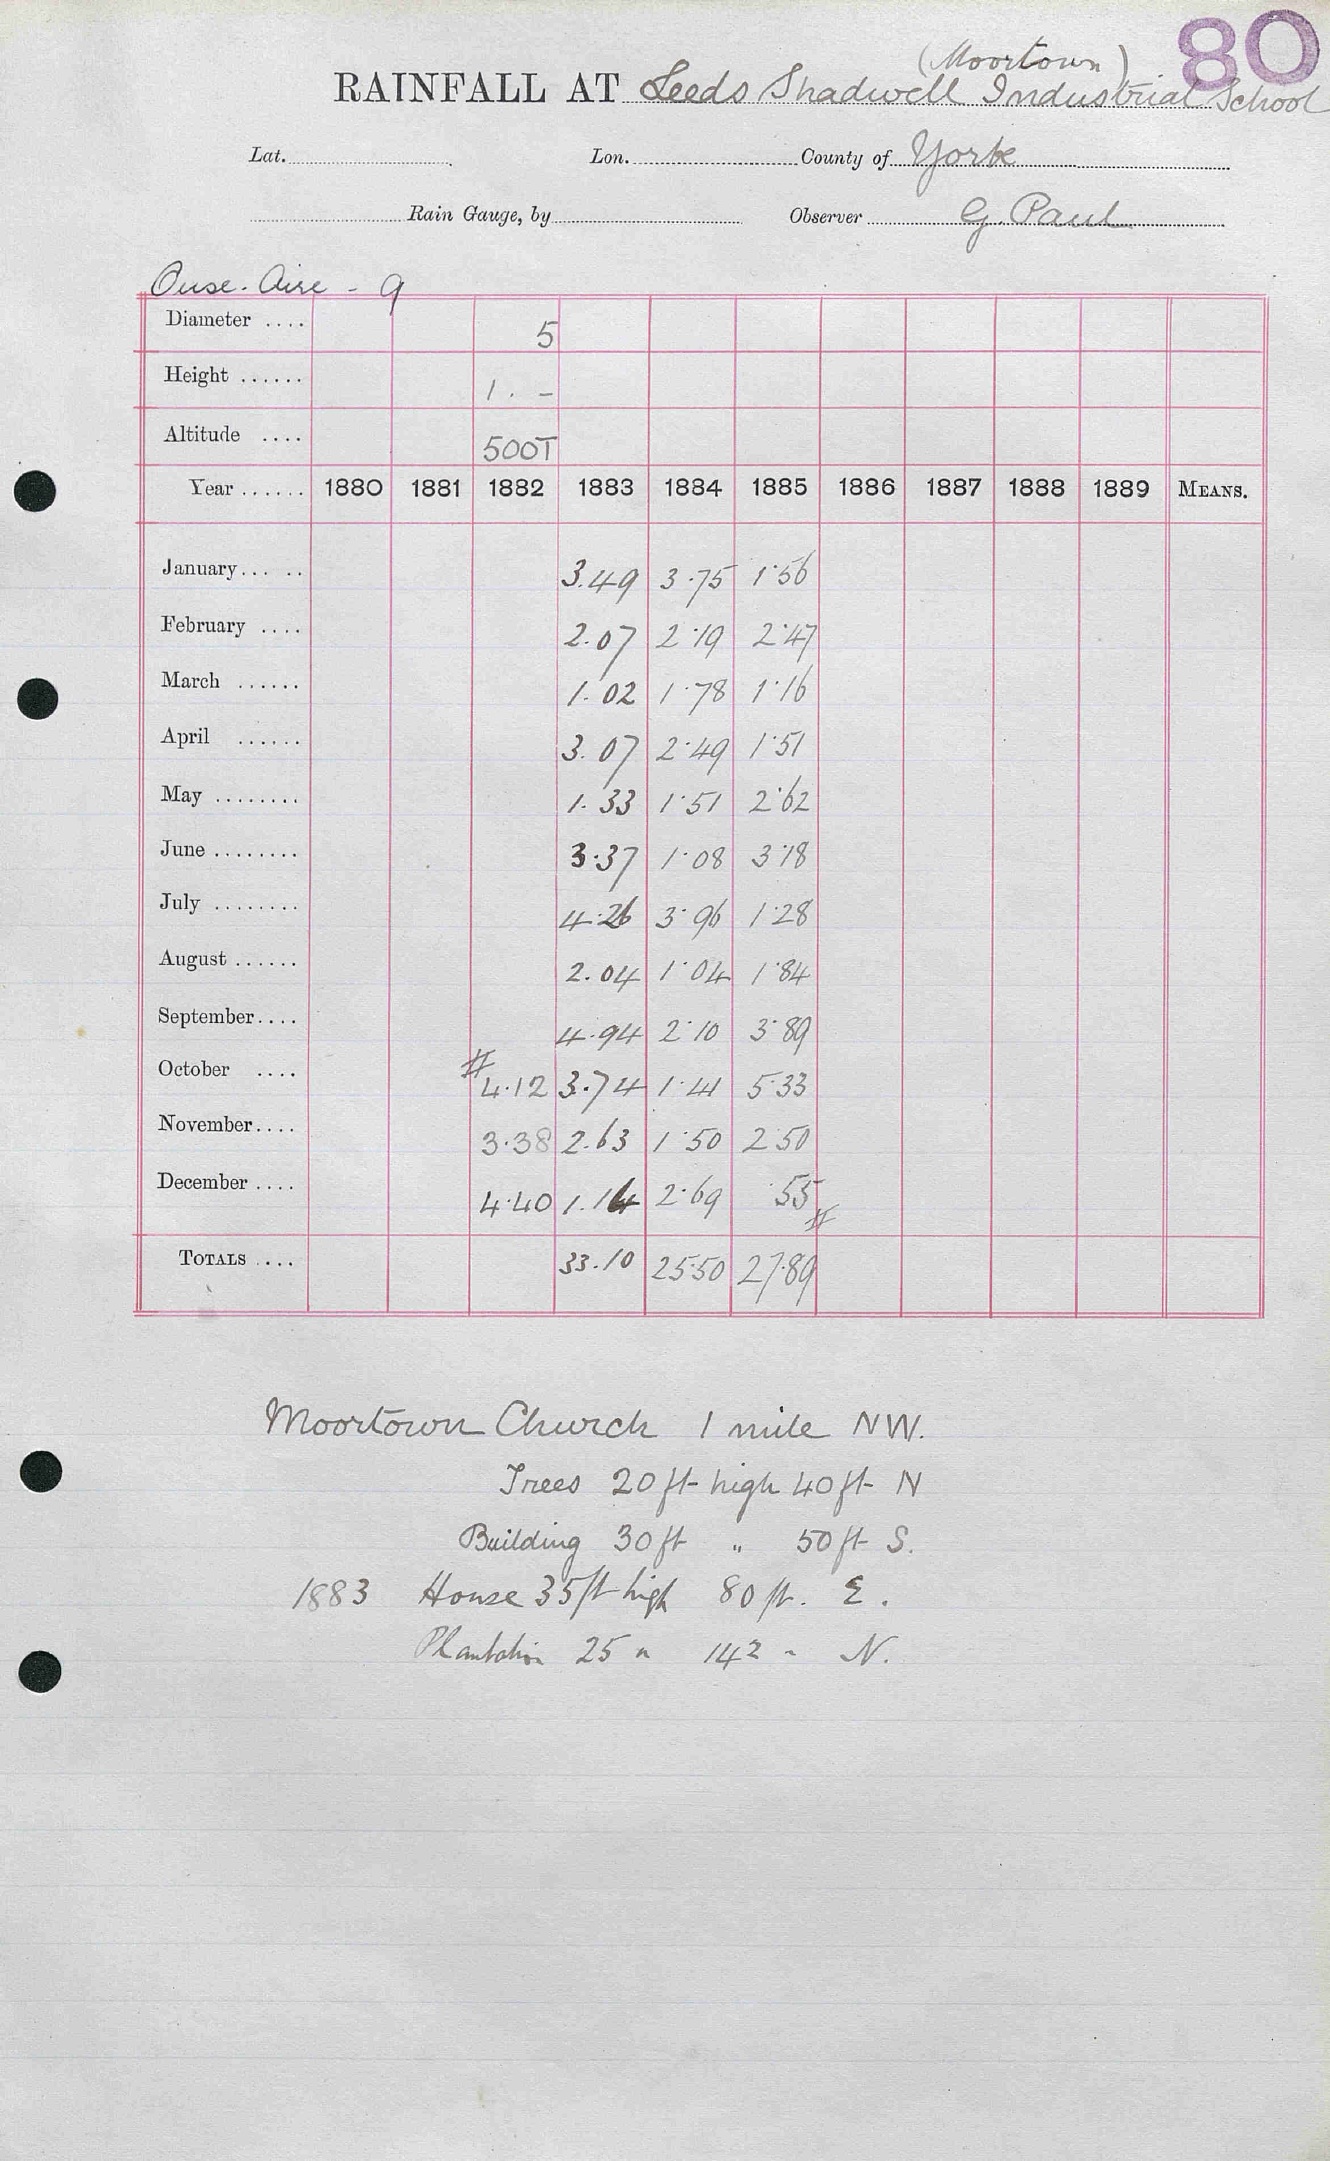 80
(Moortown)
RAINFALL AT Leeds Shadwell Industrial School
Lat. Lon. County of York
Rain Gauge, by Observer G. Paul
Ouse-Aire - 9
Diameter .... 5
Height ...... 1. -
Altitude .... 500T
Year ...... 1880 1881 1882 1883 1884 1885 1886 1887 1888 1889 MEANS.
January... .. 3.49 3.75 1.56
February .... 2.07 2.19 2.47
March ...... 1.02 1.78 1.16
April ...... 3.07 2.49 1.51
May ........ 1.33 1.51 2.62
June ........ 3.37 1.08 3.18
July ........ 4.26 3.96 1.28
August ...... 2.04 1.04 1.84
September.... 4.94 2.10 3.89
October .... # 4.12 3.74 1.41 5.33
November.... 3.38 2.63 1.50 2.50
December .... 4.40 1.14 2.69 .55 #
TOTALS .... 33.10 25.50 27.89
Moortown Church 1 mile NW.
Trees 20 ft high 40 ft N
Building 30 ft " 50 ft S.
1883 House 35 ft high 80 ft. E.
Plantation 25 " 142 " N.